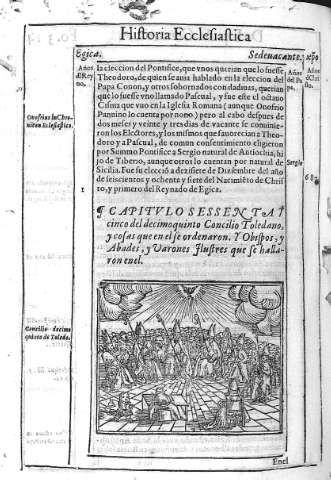 Historia Ecclesiastica
Egica.
Sedeuacante.
la eleccion del Pontifice, que vnos querian que lo fuesse
Theodoro, de quien se auia hablado en la eleccion del
Papa Conon, y otros sobornados con dadiuas, querian
que lo fuesse vno llamado Pascual, y fue este el octauo
Cisma que vuo en la Iglesia Romana (aunque Onofrio
Pannino lo cuenta por nono) pero al cabo despues de
dos meses y veinte y tres dias de vacante se conuinie-
ron los Electores, y los mismos que fauorecian a Theo-
doro y a Pascual, de comun consentimiento eligieron
por Summo Pontifice a Sergio natural de Antiochia, hi
jo de Tiberio, aunque otros lo cuentan por natural de
Sicilia. Fue su eleccion a dezisiete de Diziembre del año
de seiscientos y ochenta y siete del Nacimiẽto de Chris
to, y primero del Reynado de Egica.
Años
del Rey
no.
Onofrius in Chro-
nicon Ecclesiastico.
1
Años
del Pa
pa.
Sergio
Años
¶ CAPITVLO SESSENTA Y
cinco del decimoquinto Concilio Toledano,
y cosas que en el se ordenaron. Y Obispos, y
Abades, y Varones Ilustres que se halla-
ron en el.
Concilio decimo
quinto de Toledo.
Enel